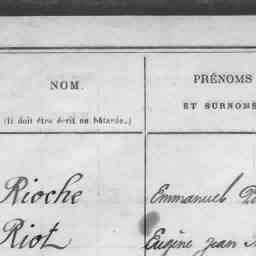 NOM.
PRÉNOMS
(Il doit être écrit en bâtarde.)
ET SURNOMS
Rioche
Emmanuel
Riot
Eugène Jean